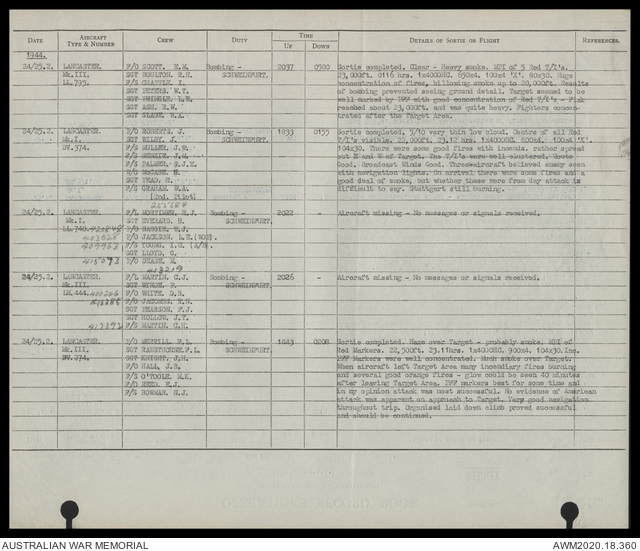 DATE AIRCRAFT TYPE & NUMBER CREW DUTY TIME UP DOWN DETAILS OF SORTIE OR FLIGHT REFERENCES.
1944.
24/25.2. LANCASTER. F/O SCOTT. Bombing - 2037 0500 Sortie completed. Clear - Heavy smoke. MPI of 5 Red T/I's.
Mk.III. SGT BOULTON. R.H. SCHWEINFURT. 23,000ft. 0116 hrs. 1x4000HC. 650x4. 100x4 'X'. 80x30. Huge
LL.795. F/S CHAPPLE. I. concentration of fires, billowing smoke up to 20,000ft. Results
SGT PETERS. W.T. of bombing prevented seeing ground detail. Target seemed to be
SGT PRINGLE. well marked by PFF with good concentration of Red T/I's - Flak
SGT ASH. R.W. reached about 23,000ft. and was quite heavy. Fighters concen-
SGT SLADE. trated after the Target Area.
24/25.2. LANCASTER. P/O ROBERTS. J. Bombing - 1833 0155 Sortie completed. 5/10 very thin low cloud. Centre of all Red
Mk.III. SGT J. SCHWEINFURT. T/I's visible. 22,000ft. 23.12 hrs. 1x4000HC. 800x4. 100x4 'X'.
DV.374. F/S MULLER. J.R. 104x30. There were some good fires with incends. rather spread
F/S J.M. out E and W of Target. The T/I's were well clustered. Route
F/S PALMER. S.J.E. Good. Broadcast Winds Good. Three aircraft believed enemy seen
W/O with navigation lights. On arrival there were some fires and a
SGT READ. R. good deal of smoke, but whether these were from day attack is
F/S GRAHAM. W.A. difficult to say. Stuttgart still burning.
(2nd. Pilot)
24/25.2 LANCASTER. F/L MORTIMER. Bombing - 2022 - Aircraft missing - No messages or signals received.
Mk.I. SGT EVERARD. H. SCHWEINFURT.
LL.740. F/O
F/O JACKSON. L.E. (WOE)
409963 F/S YOUNG. I.G.
SGT LLOYD. G.
415073 F/O DEANE. M.
413219
24/25.2. LANCASTER. F/L MARTIN. C.J. Bombing - 2026 - Aircraft missing - No messages or signals received.
Mk.III. SGT SCHWEINFURT.
LM.444. F/O WHITE. D.B.
F/O JACOMBS.
SGT PEARSON. F.J.
SGT J.T.
F/S MARTIN. C.H.
24/25.2 LANCASTER. P/O F.L. Bombing - 1843 0208 Sortie completed. Haze over Target - probably smoke. MPI of
Mk.III. SGT RAMSTHORNE.F.L. SCHWEINFURT. Red Markers. 22,500ft. 23.11hrs. 1x4000HC. 900x4. 104x30.Inc.
DV.274. SGT KNIGHT. J.H. PFF Markers were well concentrated. Much smoke over Target.
F/O HALL. J.B. When aircraft left Target Area many incendiary fires burning
F/S O'TOOLE. M.K. and several good orange fires - glow could be seen 40 minutes
F/O REED. E.J. after leaving Target Area. PFF markers best for some time and
F/S BOWMAN. N.J. in my opinion attack was most successful. No evidence of American
attack was apparent on approach to Target. Very good navigation
throughout trip. Organised laid down climb proved successful
and should be continued.
AUSTRALIAN WAR MEMORIAL AWM2020.18.360